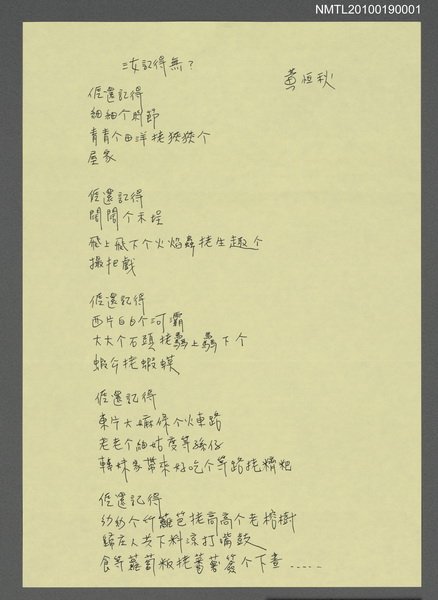 NMTL20100190001
汝記得無?
黃恒秋
𠊎還記得
細細个時節
青青个田洋㧯狹狹个
屋家
𠊎還記得
闊闊个禾埕
飛上飛下个火焰蟲㧯生趣个
撮把戲
𠊎還記得
西片白白个河灞
大大个石頭㧯上下个
蝦公㧯蝦蟆
𠊎還記得
東片大嫲條个火車路
老老个細姑度等孫仔
轉妹家帶來好吃个等路㧯糍粑
𠊎還記得
幼幼个竹籬笆㧯高高个老榕樹
歸庄人共下料涼打嘴鼓
食等蘿蔔粄㧯蕃薯簽个下晝.....